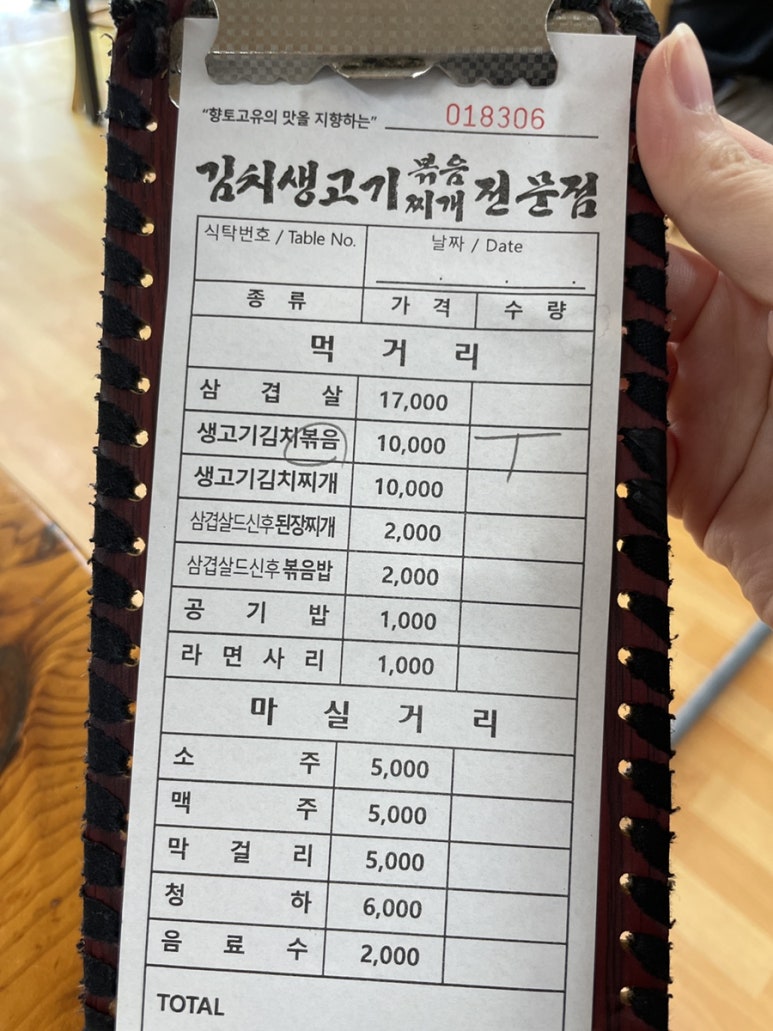 "향토고유의 맛을 지향하는" 018306
김치생고기 볶음 찌개 전문점
식탁번호 / Table No. 날짜 / Date
. . .
종 류 가 격 수 량
먹 거 리
삼 겹 살 17,000
생고기김치볶음 10,000 T
생고기김치찌개 10,000
삼겹살드신후된장찌개 2,000
삼겹살드신후볶음밥 2,000
공 기 밥 1,000
라 면 사 리 1,000
마 실 거 리
소 주 5,000
맥 주 5,000
막 걸 리 5,000
청 하 6,000
음 료 수 2,000
TOTAL